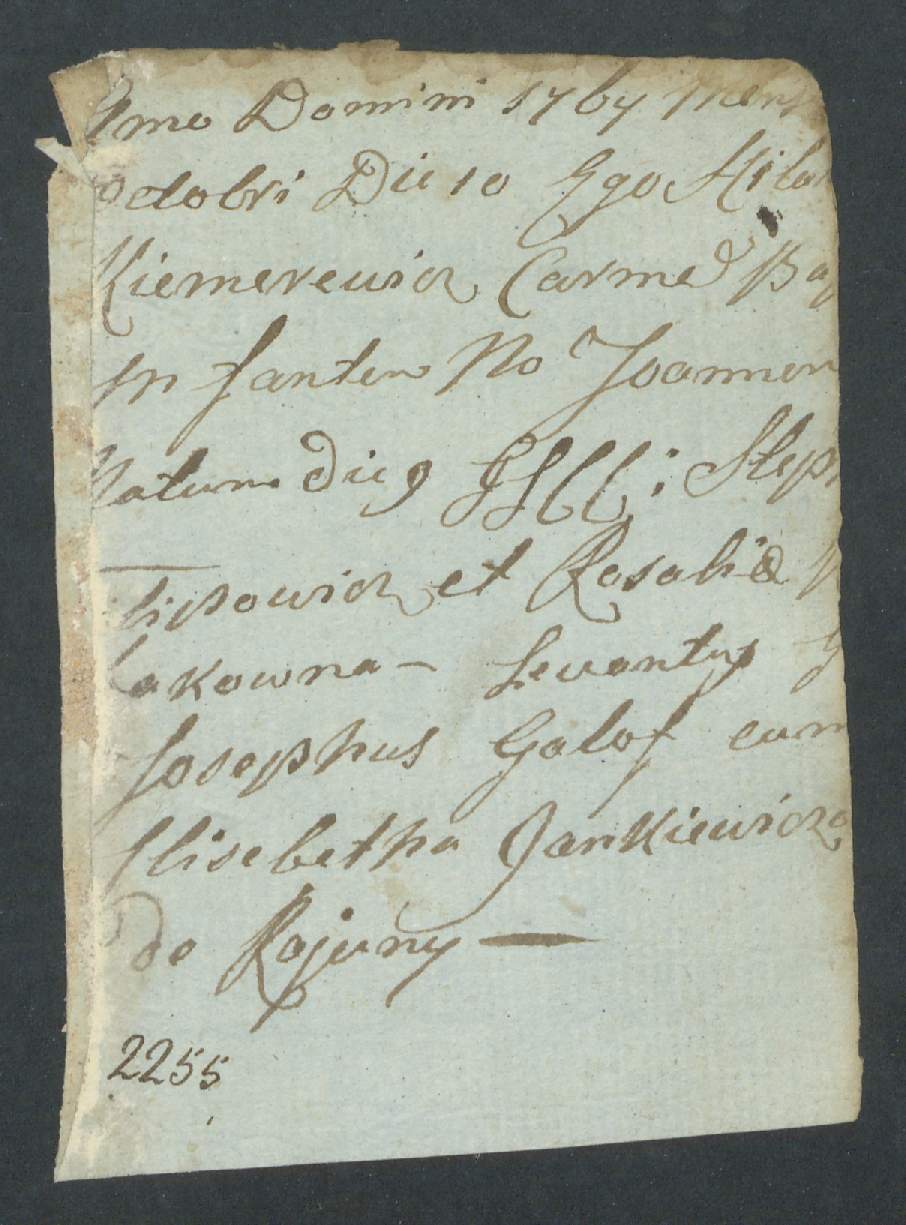 Anno Domini 1767 Mens
Octobri Die 10 Ego Hilar
Kiemerewicz Carme Bap
Infantem No Joannem
Natum Die 9 LLCC: Steph
lipowicz et Rosaliæ
lakowna — Levantes
Josephus Galof cum
Elisebetha Jankiewiczo
de Rojuny —
2255